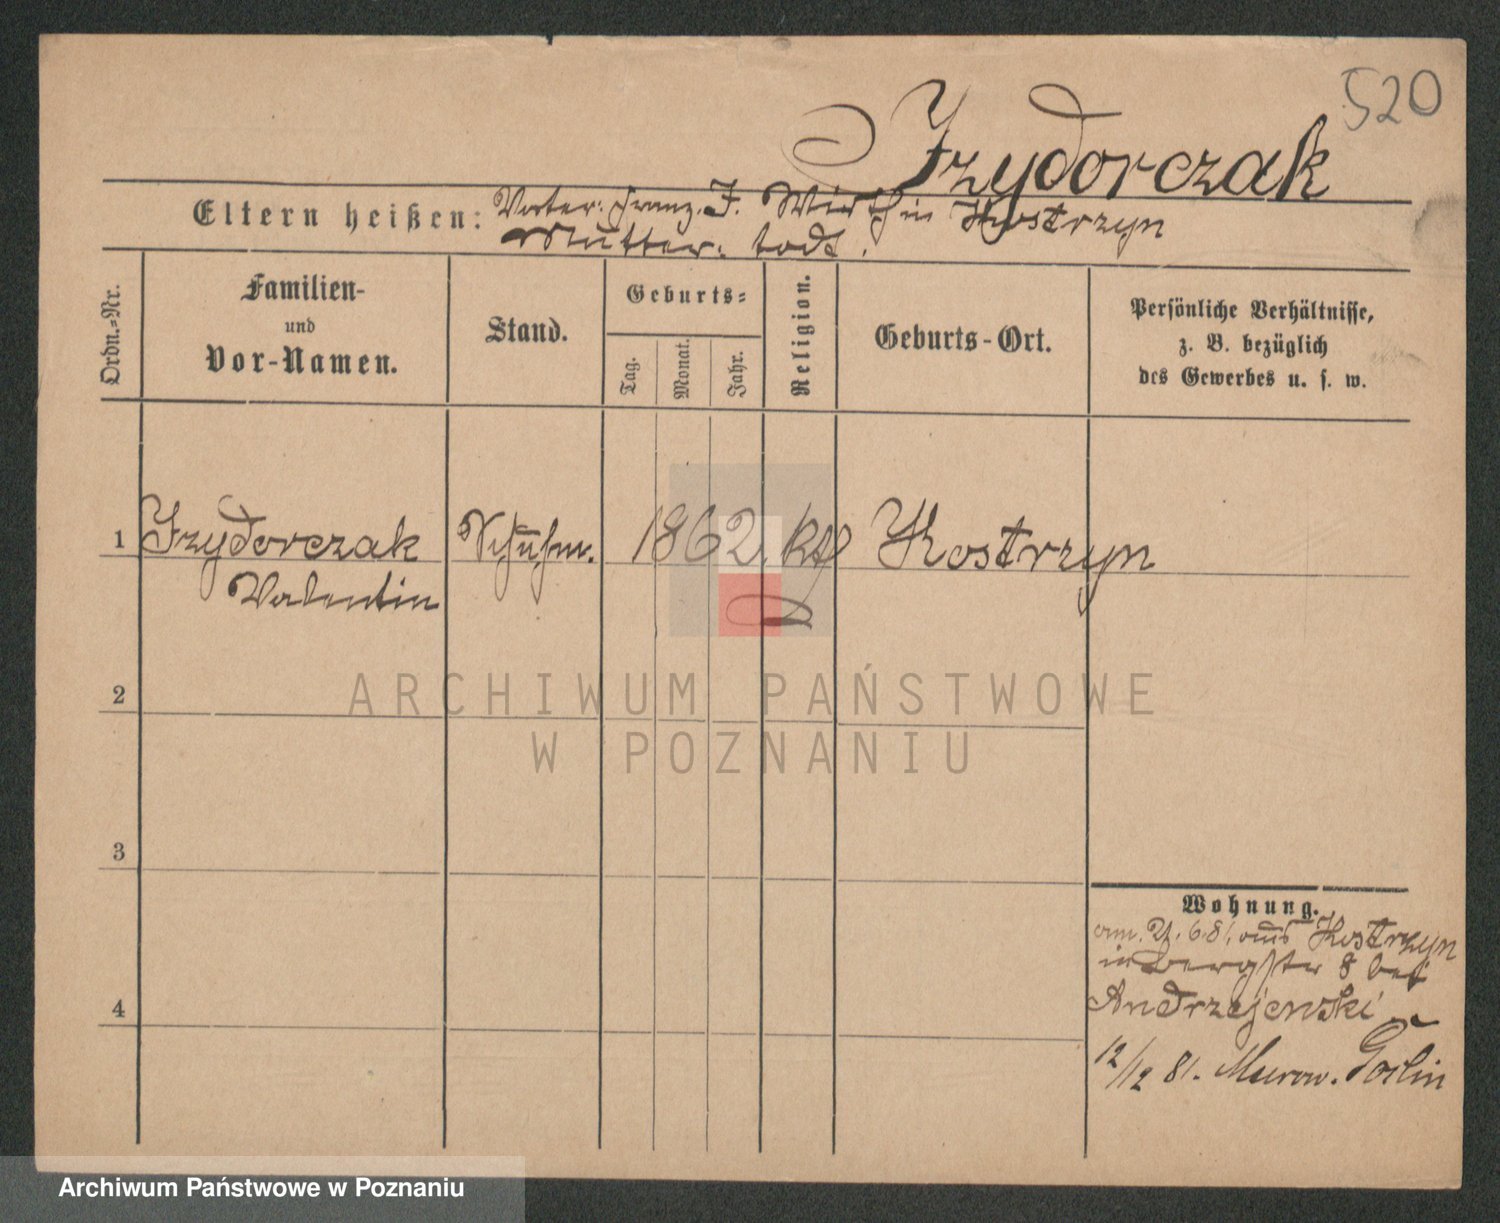 520
Izydorczak
Eltern heißen: Vater: Franz. I. Wirth in Kostrzyn
Mutter: todt.
Ordn.=Nr.
Familien-
und
Vor-Namen.
Stand.
Geburts=
Tag.
Monat.
Jahr.
Religion.
Geburts-Ort.
Persönliche Verhältnisse,
z. B. bezüglich
des Gewerbes u. s. w.
1 Izydorczak Schuhm. 1862. kth Kostrzyn
Valentin
2
3
4
Wohnung.
am 21. 6. 81. aus Kostrzyn
in Bergstr 8 bei
Andrzejewski
12/12 81. Murow. Goslin
ARCHIWUM PAŃSTWOWE
W POZNANIU
Archiwum Państwowe w Poznaniu